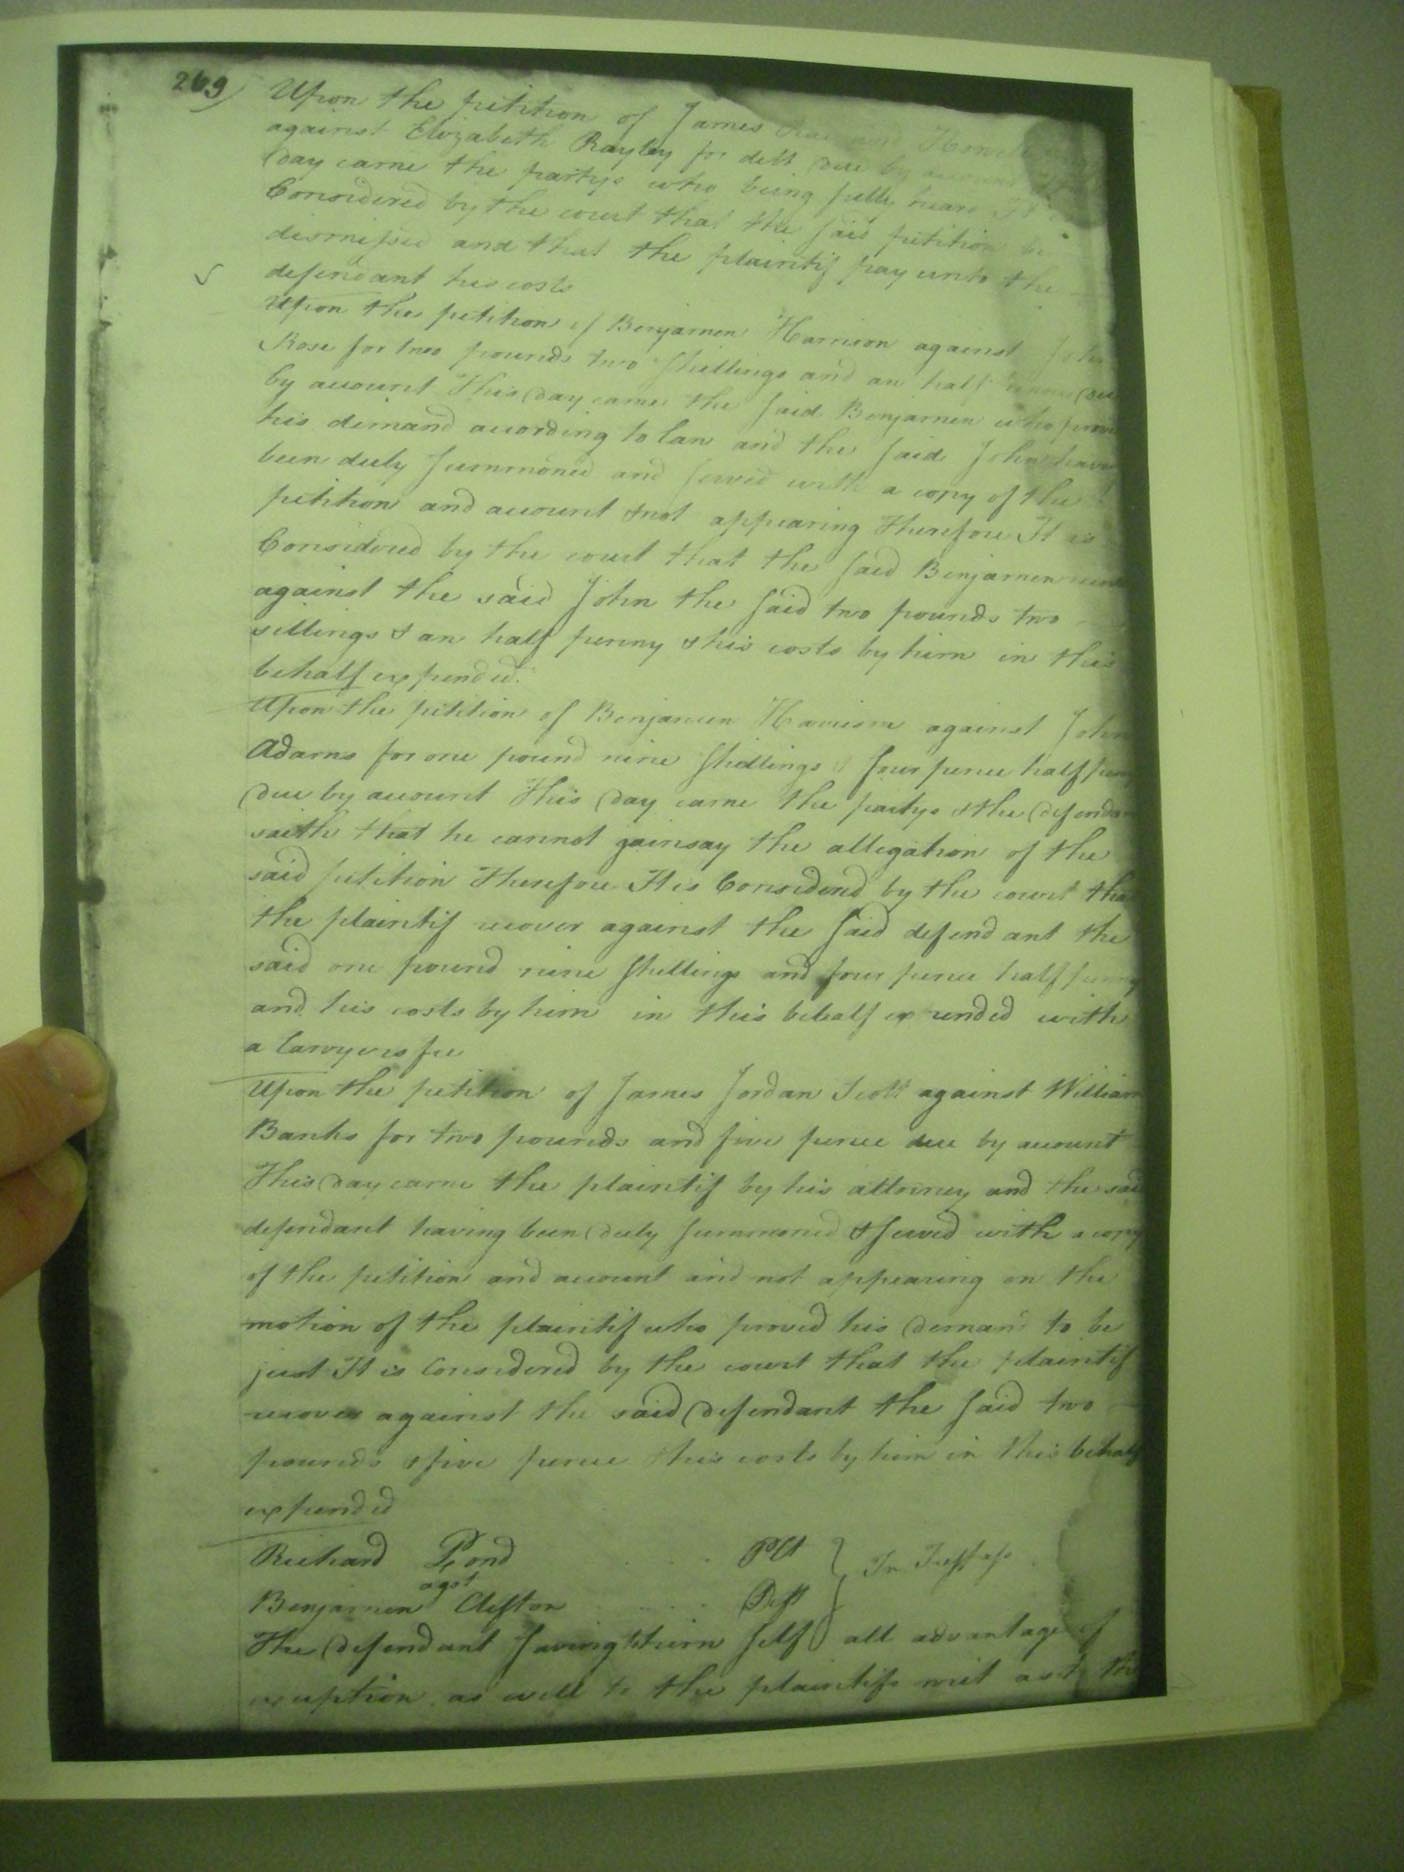 269
Upon the petition of James
against Elizabeth Rayley for debt due by account
day came the partys who being fully heard It
Considered by the court that the said petition be
dismissed and that the plaintif pay unto the
defendant his costs
Upon the petition of Benjamen Harrison against John
Rose for two pounds two shillings and an half penny due
by account This day came the said Benjamen who prov
his demand according to law and the said John have
been duely summoned and served with a copy of the
petition and account & not appearing Therefore It is
Considered by the court that the said Benjamen
against the said John the said two pounds two
sillings & an half penny & his costs by him in this
behalf expended.
Upon the petition of Benjamen Harrison against John
Adams for one pound nine shillings & four pence half penny
due by account This day came the partys & the defendan
saith that he cannot gainsay the allegation of the
said petition Therefore It is Considered by the court that
the plaintif recover against the said defendant the
said one pound nine shillings and four pence half penny
and his costs by him in this behalf expended with
a lawyers fee
Upon the petition of James Jordan Scott against William
Banks for two pounds and five pence due by account
This day came the plaintif by his attorney and the said
defendant having been duely summoned & served with a copy
of the petition and account and not appearing on the
motion of the plaintif who proved his demand to be
just It is Considered by the court that the plaintif
recover against the said defendant the said two
pounds & five pence & his costs by him in this behalf
expended
Richard Pond Plt
agst In Tresspass
Benjamen Clifton Deft
The defendant saving to him self all advantage of
exception as well to the plaintifs writ as to the